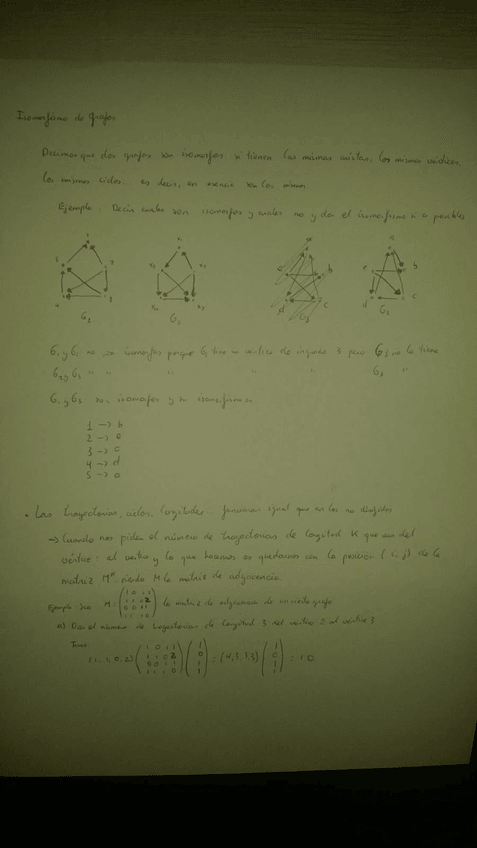 Isomorfismo de grafos
Decimos que dos grafos son isomorfos si tienen las mismas aristas, los mismos vértices,
los mismos ciclos... es decir, en esencia son los mismos
Ejemplo: Decir cuales son isomorfos y cuales no y dar el isomorfismo si es posible
G2 G1 G3 G3
G1 y G2 no son isomorfos porque G1 tiene un vértice de ingrado 3 pero no lo tiene
G2 y G3 " " " " G3 "
G1 y G3 son isomorfos y su isomorfismo
1 -> b
2 -> e
3 -> c
4 -> d
5 -> a
• Las trayectorias, ciclos, longitudes... funcionan igual que en los no dirigidos
-> Cuando nos piden el número de trayectorias de longitud K que van del
vértice i al vértice j lo que hacemos es quedarnos con la posición (i, j) de la
matriz M^K siendo M la matriz de adyacencia.
Ejemplo: sea M = la matriz de adyacencia de un cierto grafo
a) Dar el número de trayectorias de longitud 3 del vértice 2 al vértice 3
(1, 1, 0, 2) = (4, 3, 3, 3) = 10